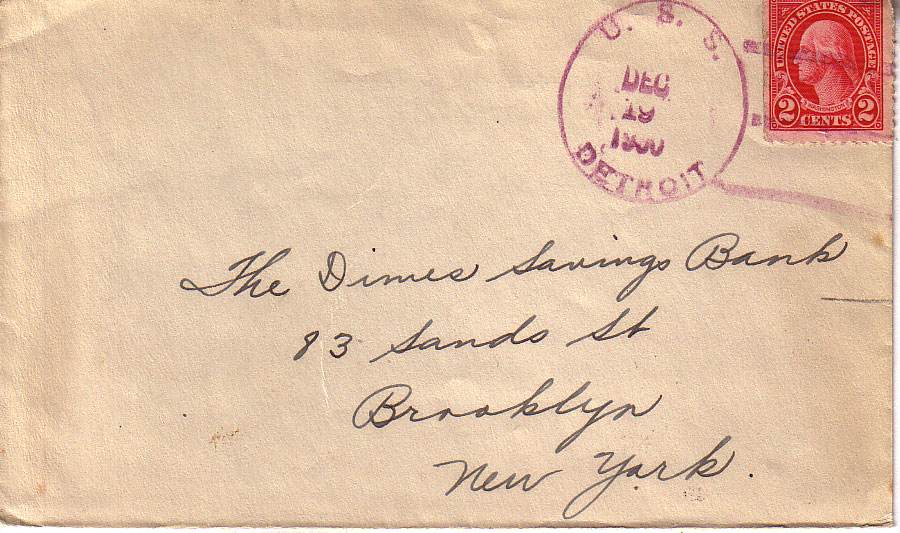 U. S. S.
DEC
19
DETROIT
UNITED STATES POSTAGE
WASHINGTON
2 CENTS 2
The Dimes Savings Bank
83 Sands St
Brooklyn
New York.